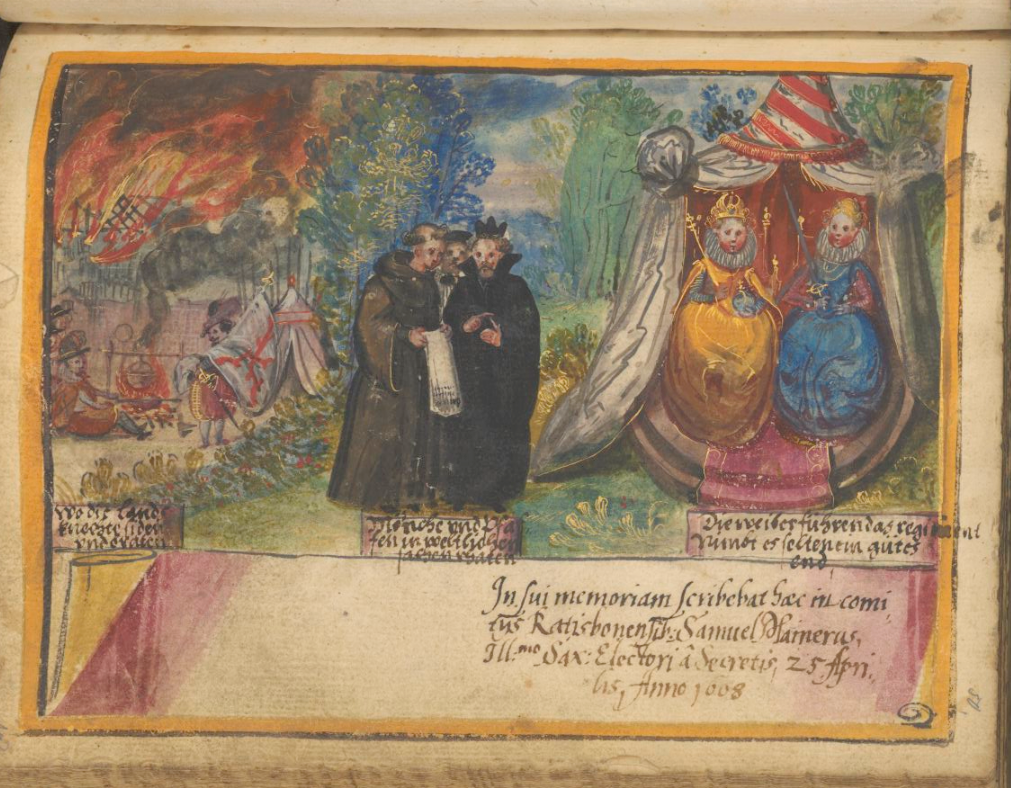 Wo die Lands
knechte sieden
und braten
Mönche und Pfa
fen in weltlichen
sachen rhaten
Die weiber führen das regiment
Nimbt es selten ein gutes
end,
In sui memoriam scribebat hæc in comi
tijs Ratisbonensib:
Ill.mo Sax: Electori â Secretis, 25 Apri
lis, Anno 1608